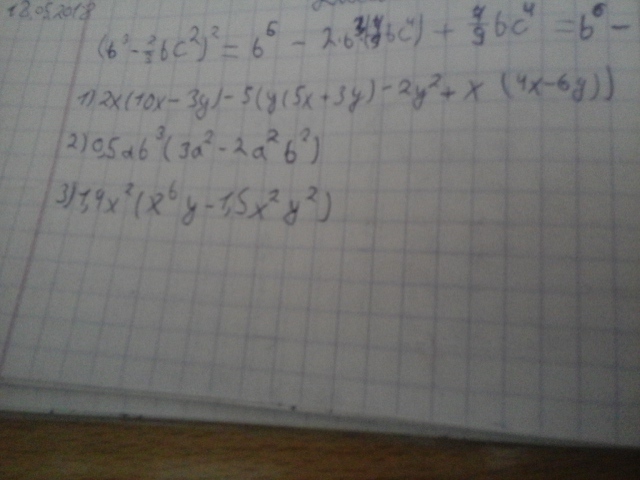 18.05.2018
(b³ - 2/3 bc²)² = b⁶ - 2·b³ bc⁴) + 4/9 bc⁴ = b⁶ -
1) 2x(10x - 3y) - 5(y(5x + 3y) - 2y² + x (4x - 6y))
2) 0,5ab³(3a² - 2a²b²)
3) 1,4x²(x⁶y - 1,5x²y²)